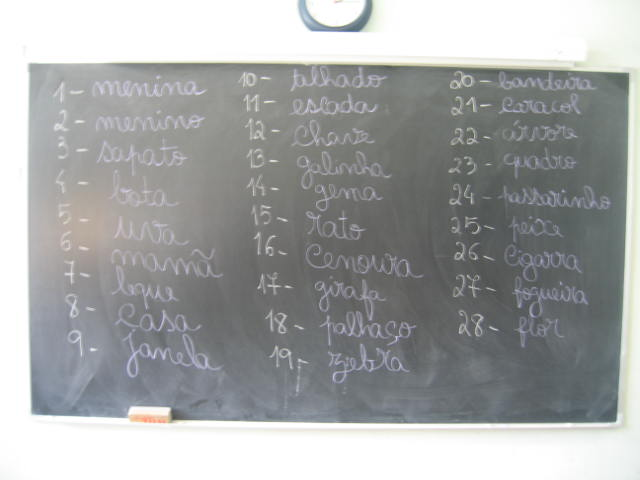 1 - menina
2 - menino
3 - sapato
4 - bota
5 - uva
6 - mamã
7 - leque
8 - casa
9 - janela
10 - telhado
11 - escada
12 - chave
13 - galinha
14 - gema
15 - rato
16 - cenoura
17 - girafa
18 - palhaço
19 - zebra
20 - bandeira
21 - caracol
22 - árvore
23 - quadro
24 - passarinho
25 - peixe
26 - cigarra
27 - fogueira
28 - flor